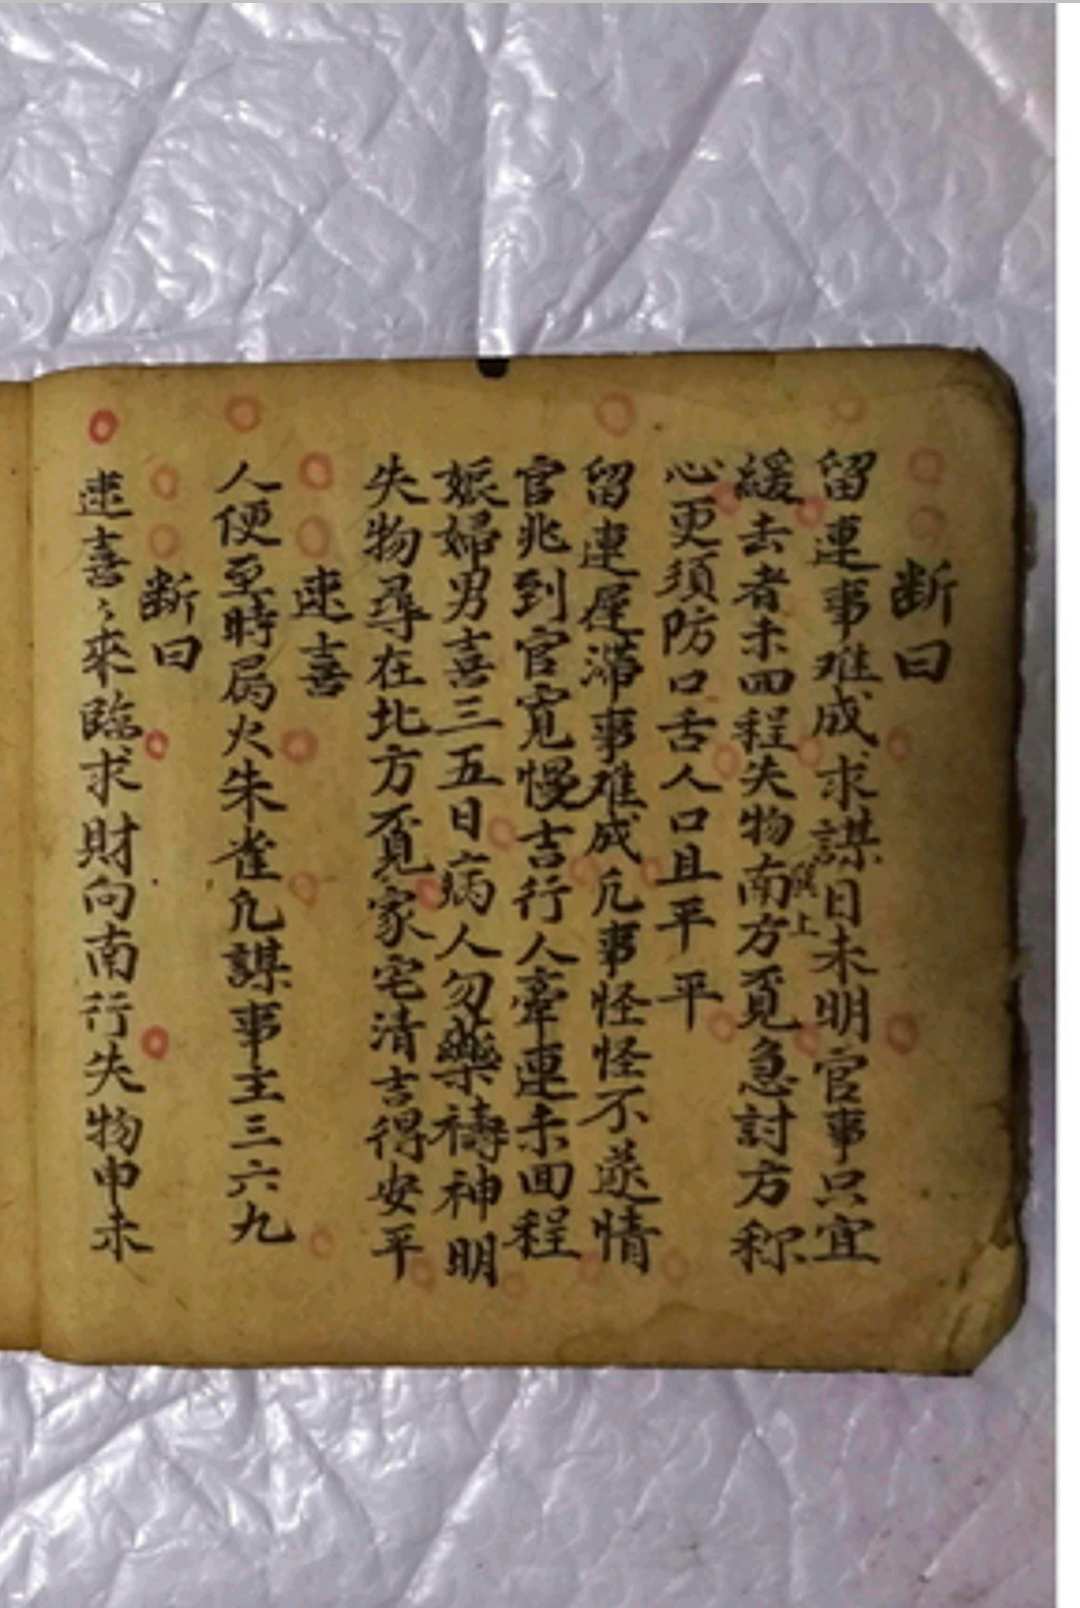 断曰
留連事难成求謀日未明官事只宜
緩去者未囬程失物南方覓急討方称
上
心更須防口舌人口且平平
留連屋滯事难成凢事怪怪不遂情
官兆到官寬慢吉行人牽連未囬程
娠婦男喜三五日病人勿藥禱神明
失物尋在北方覓家宅清吉得安平
速喜
人便至時属火朱雀凢謀事主三六九
断曰
速喜〻來臨求財向南行失物申未